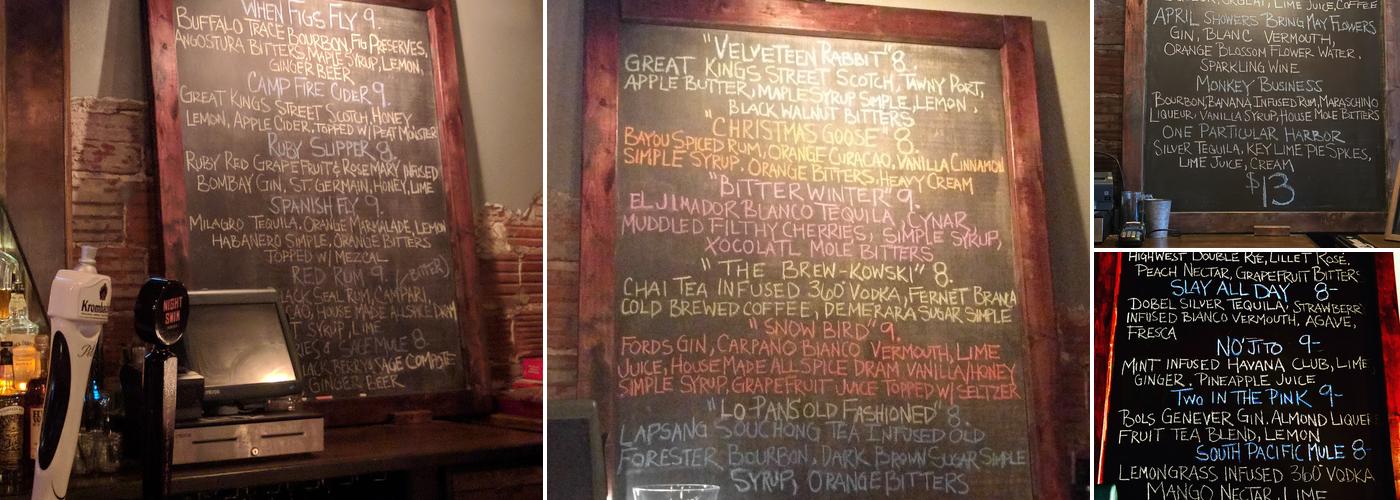 WHEN FIGS FLY 9.
BUFFALO TRACE BOURBON, FIG PRESERVES,
ANGOSTURA BITTERS, MAPLE SYRUP, LEMON,
GINGER BEER
CAMP FIRE CIDER 9.
GREAT KINGS STREET SCOTCH, HONEY
LEMON, APPLE CIDER, TOPPED W/ PEAT MONSTER
RUBY SLIPPER 9.
RUBY RED GRAPEFRUIT & ROSEMARY INFUSED
BOMBAY GIN, ST. GERMAIN, HONEY, LIME
SPANISH FLY 9.
MILAGRO TEQUILA, ORANGE MARMALADE, LEMON
HABANERO SIMPLE, ORANGE BITTERS
TOPPED W/ MEZCAL
RED RUM 9. (-BITTER)
LACK SEAL RUM, CAMPARI,
CAO, HOUSE MADE ALLSPICE DRAM
T SYRUP, LIME
IES & SAGE MULE 8.
ACKBERRY SAGE COMPOTE
GINGER BEER
Kromba
NIGHT
SWIM
"VELVETEEN RABBIT" 8.
GREAT KINGS STREET SCOTCH, TAWNY PORT,
APPLE BUTTER, MAPLE SYRUP SIMPLE, LEMON,
BLACK WALNUT BITTERS
"CHRISTMAS GOOSE" 8.
BAYOU SPICED RUM, ORANGE CURACAO, VANILLA CINNAMON
SIMPLE SYRUP, ORANGE BITTERS, HEAVY CREAM
"BITTER WINTER" 9.
EL JIMADOR BLANCO TEQUILA, CYNAR,
MUDDLED FILTHY CHERRIES, SIMPLE SYRUP,
XOCOLATL MOLE BITTERS
"THE BREW-KOWSKI" 8.
CHAI TEA INFUSED 360 VODKA, FERNET BRANCA
COLD BREWED COFFEE, DEMERARA SUGAR SIMPLE
"SNOW BIRD" 9.
FORDS GIN, CARPANO BIANCO VERMOUTH, LIME
JUICE, HOUSE MADE ALL SPICE DRAM VANILLA/HONEY
SIMPLE SYRUP, GRAPEFRUIT JUICE TOPPED W/ SELTZER
"LO PANS OLD FASHIONED" 8.
LAPSANG SOUCHONG TEA INFUSED OLD
FORESTER BOURBON, DARK BROWN SUGAR SIMPLE
SYRUP, ORANGE BITTERS
ORGEAT, LIME JUICE, COFFEE
APRIL SHOWERS BRING MAY FLOWERS
GIN, BLANC VERMOUTH,
ORANGE BLOSSOM FLOWER WATER,
SPARKLING WINE
MONKEY BUSINESS
BOURBON, BANANA INFUSED RUM, MARASCHINO
LIQUEUR, VANILLA SYRUP, HOUSE MOLE BITTERS
ONE PARTICULAR HARBOR
SILVER TEQUILA, KEY LIME PIE SPICES,
LIME JUICE, CREAM
$13
HIGHWEST DOUBLE RYE, LILLET ROSÉ,
PEACH NECTAR, GRAPEFRUIT BITTERS
SLAY ALL DAY 8-
DOBEL SILVER TEQUILA, STRAWBERR
INFUSED BIANCO VERMOUTH, AGAVE,
FRESCA
NO'JITO 9-
MINT INFUSED HAVANA CLUB, LIME
GINGER, PINEAPPLE JUICE
TWO IN THE PINK 9-
BOLS GENEVER GIN, ALMOND LIQUE
FRUIT TEA BLEND, LEMON
SOUTH PACIFIC MULE 8-
LEMONGRASS INFUSED 360 VODKA
MANGO NECTAR, LIME